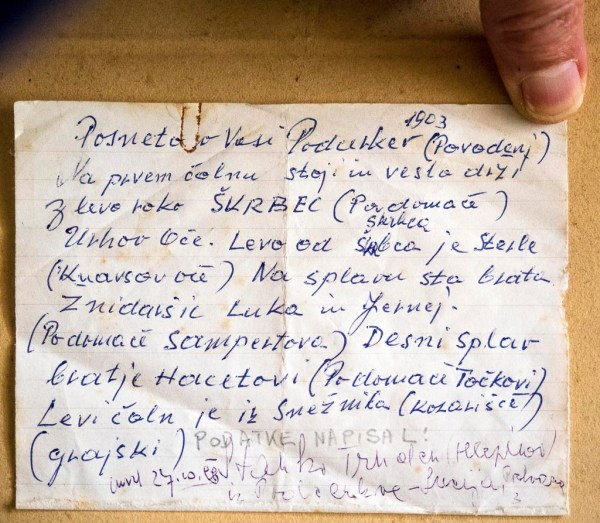 1903
Posneto v Vasi Podcerkev (Povodenj)
Na prvem čolnu stoji in veslo drži
z levo roko ŠKRBEC (Po domače)
Škrbca
Urhov Oče. Levo od je Sterle
(Knavsov oče) Na splavu sta brata
Žnidaršič Luka in Jernej.
(Podomače Sampertova) Desni splav
bratje Hacetovi (Podomače Točkovi)
Levi čoln je iz Snežnika (Kozarišče)
(grajski) PODATKE NAPISAL:
(umrl 27.10.